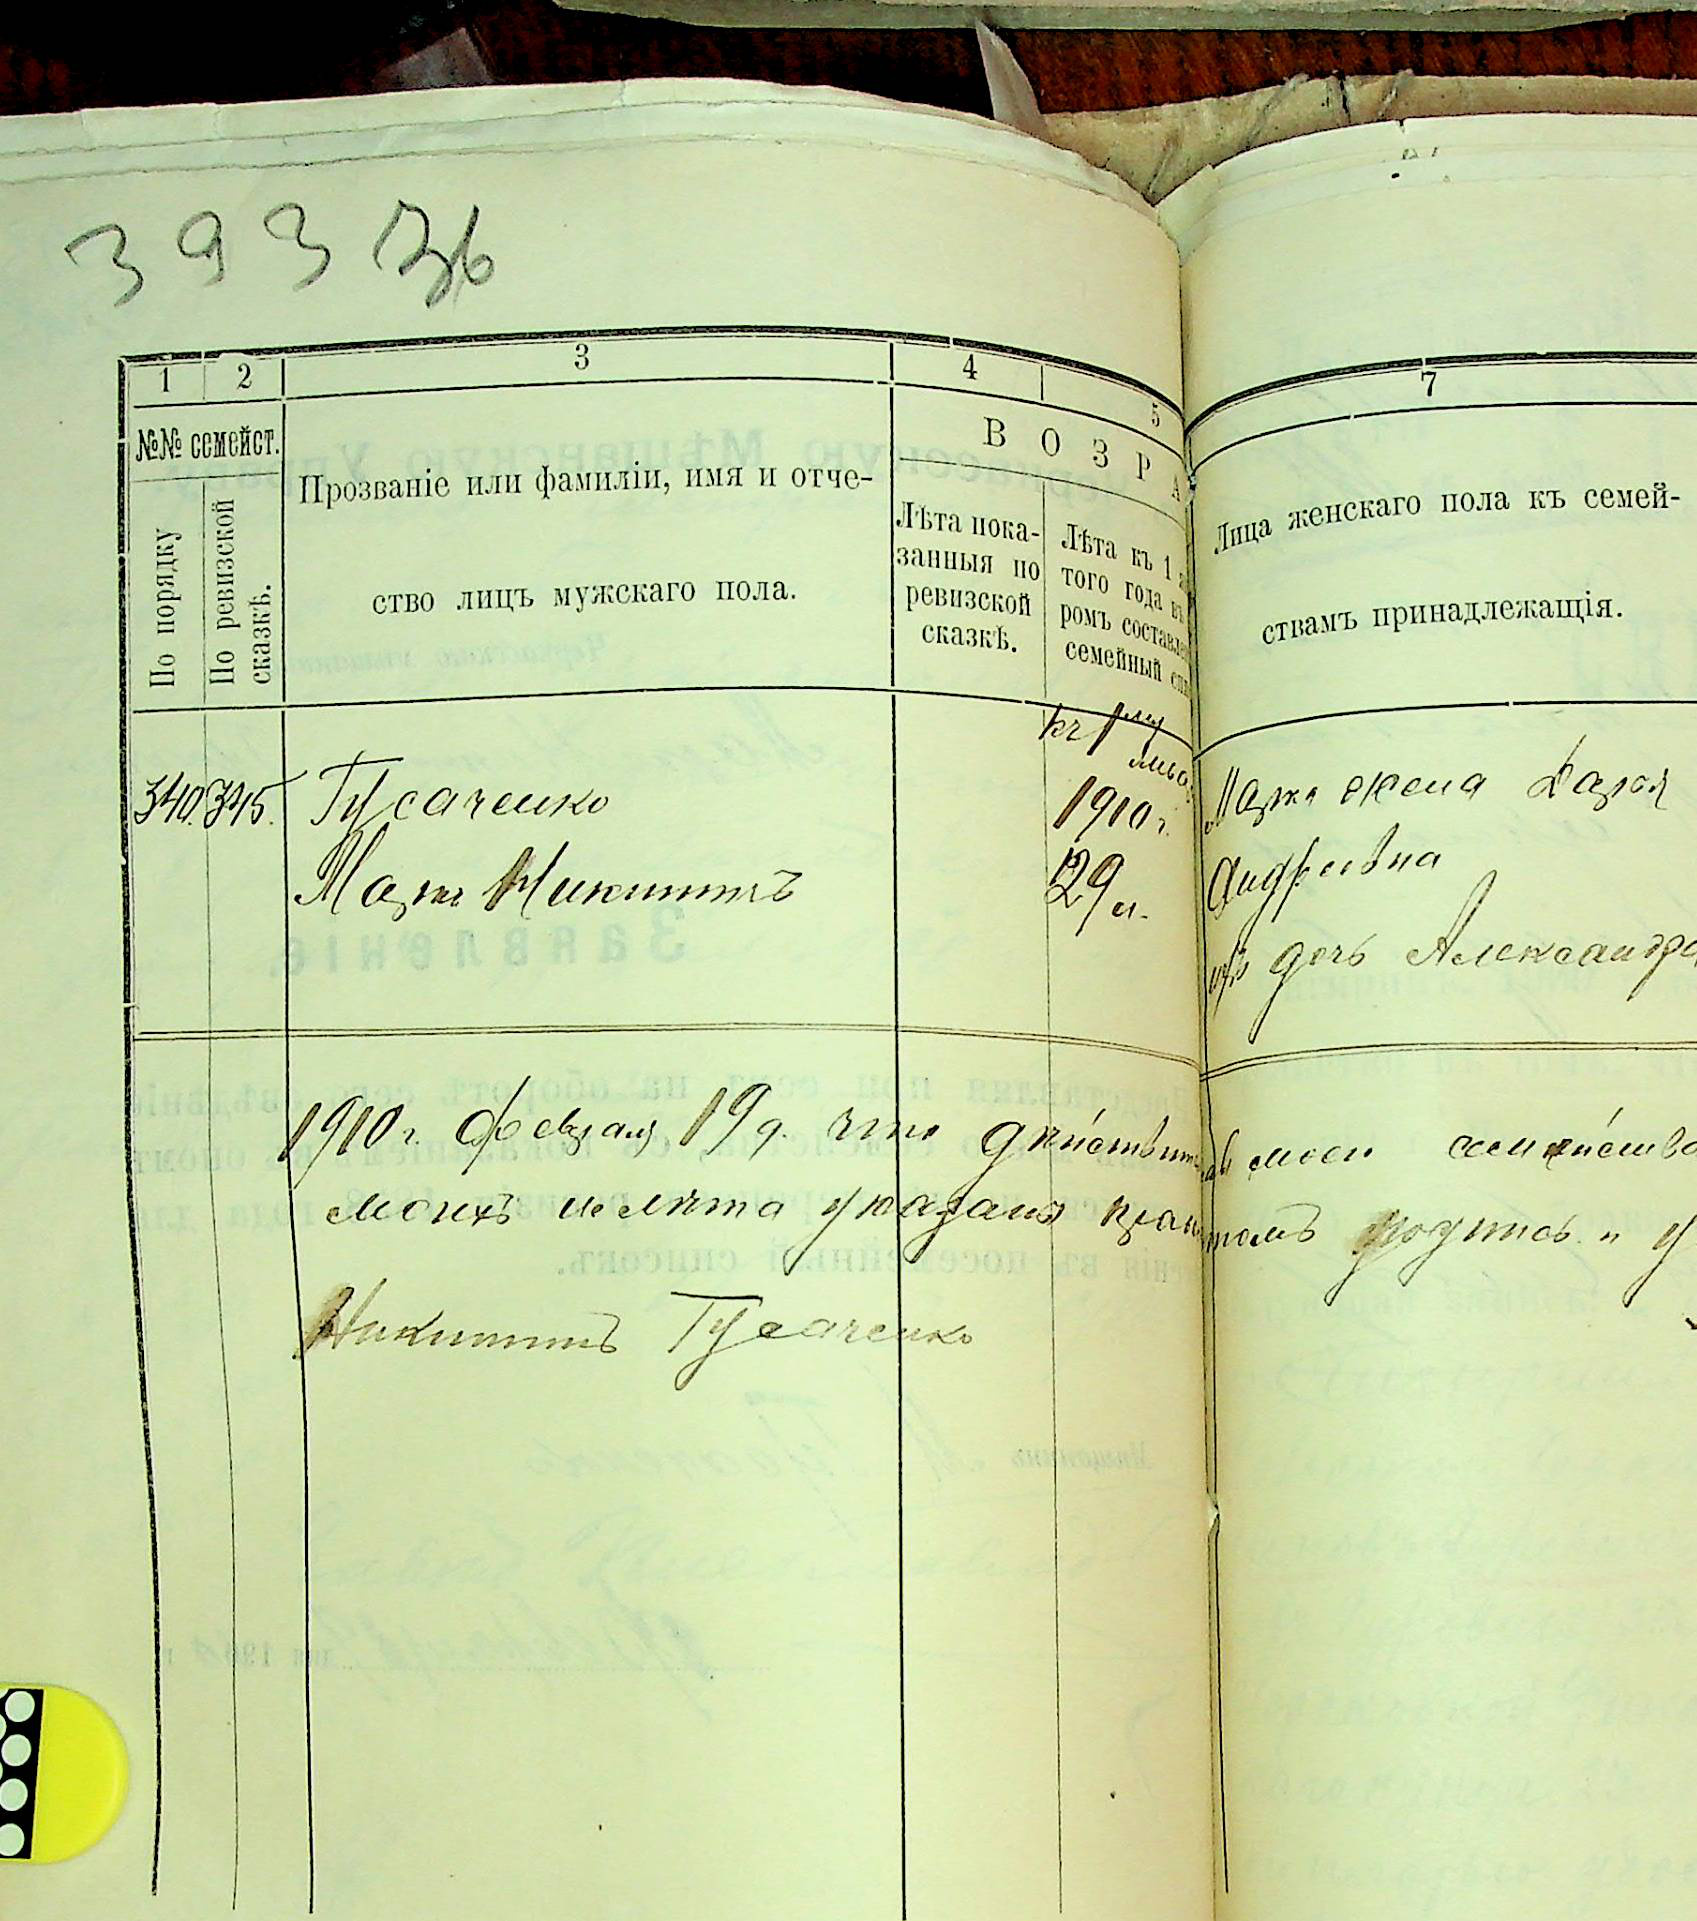 393 зв
1 2 3 4 5 7
№№ семейст.
По порядку
По ревизской сказкѣ.
Прозваніе или фамиліи, имя и отче-
ство лицъ мужскаго пола.
В О З Р А
Лѣта пока-
занныя по
ревизской
сказкѣ.
Лѣта къ 1
того года въ
ромъ составле
семейный спи
Лица женскаго пола къ семей-
ствамъ принадлежащія.
къ 1му
1910 г.
340. 345. Гусаченко
Марко Никитинъ 29 л.
Марка жена Дарья
Андреевна
ихъ дочь Александра
1910 г. Февраля 19 д. что дѣйствит моего семейства
моихъ и лѣта указаны подпись и у
Никитинъ Гусаченко